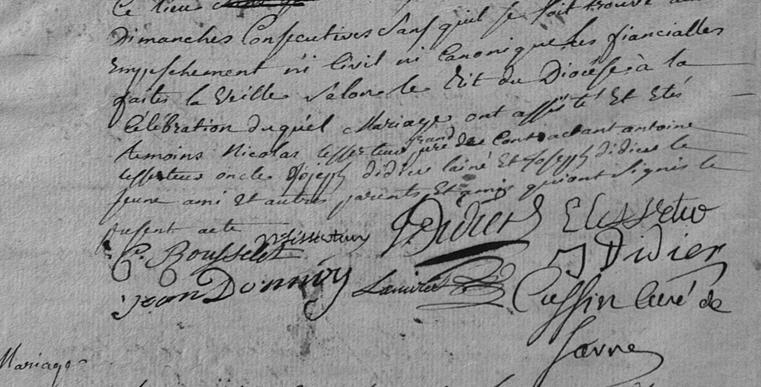 Ce lieu
Dimanches Consecutives Sans quil se soit trouvé
Empeschement ni Civil ni Canonique les fiancialles
faites la Veille Selon le Rit du Diocése, à la
Célébration duquél Mariage ont assisté Et Etés
temoins Nicolas Lesserteur grand pere du Contractant antoine
Lesserteur oncle Joseph didier lainé Et Joseph didier le
jeune ami et autres parents Et amis qui ont Signés le
present acte
C. Rousselet NLisserteur J Didier E Lessertur
Jean Donnoy J Didier
Cuffin Curé de
Savre
Mariage